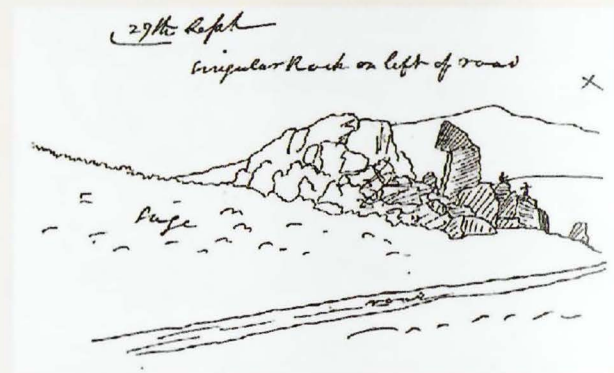 29th Sept
Singular Rock on left of road
X
Sage
road